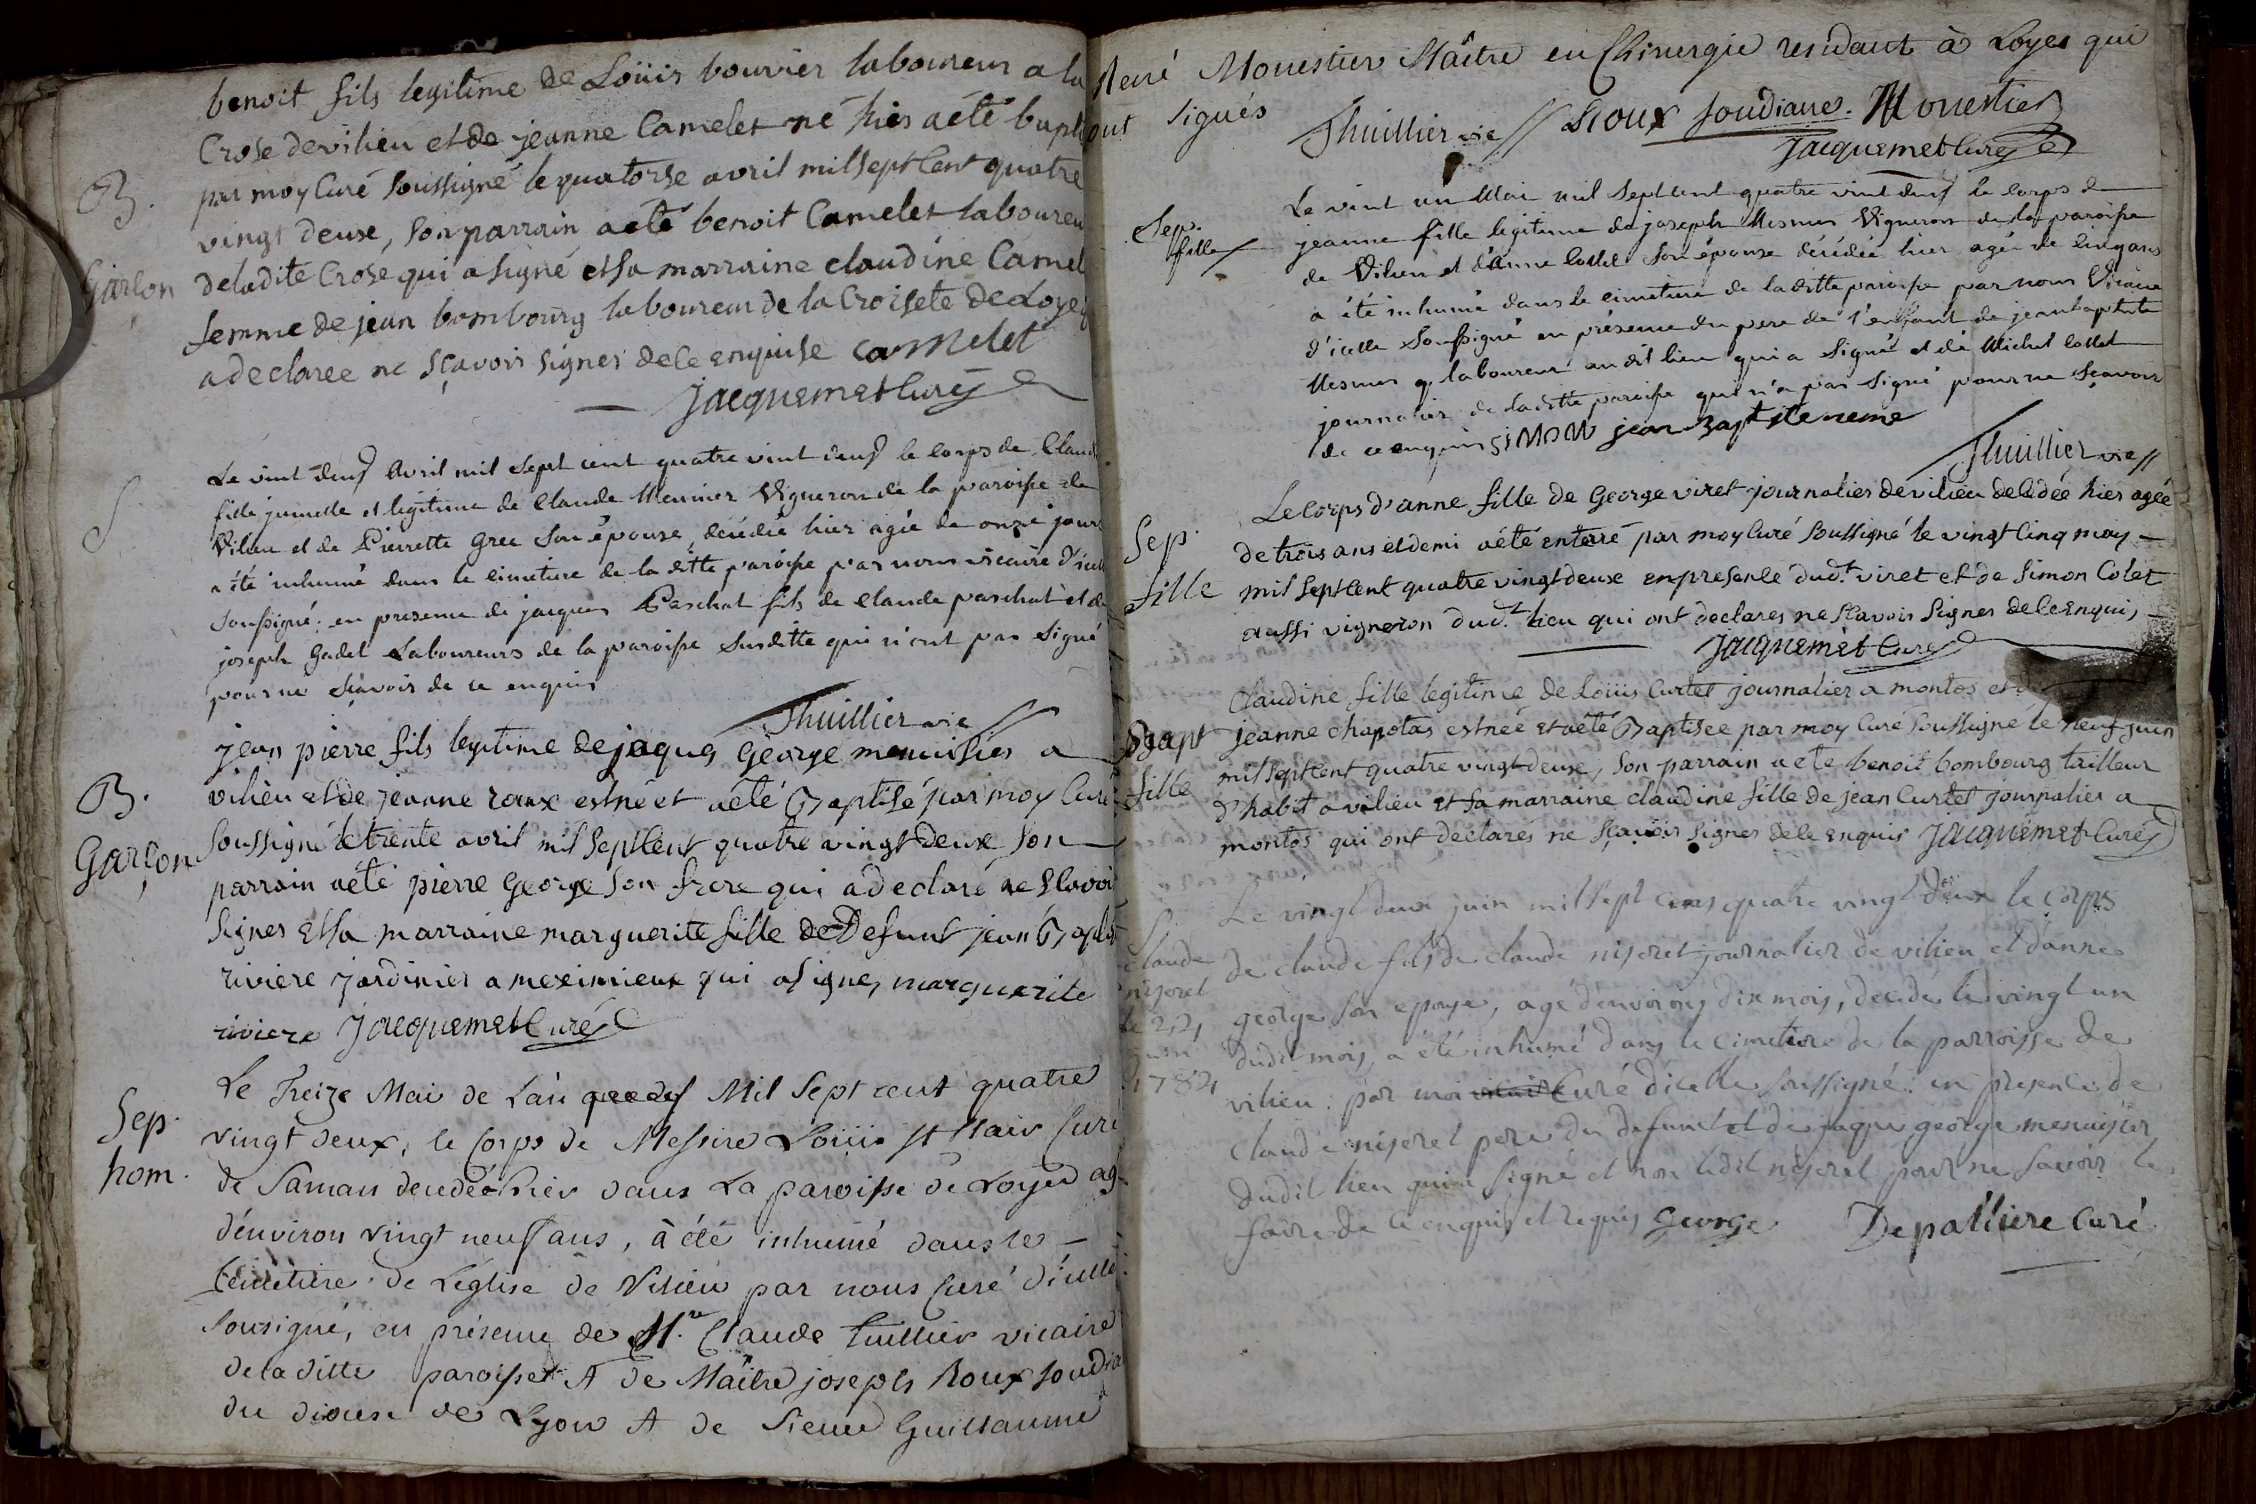 benoit fils legitime de Loüis bouvier laboureur a la
Crose de vilieu et de jeanne Camelet né hier a été bapt
B. par moy Curé soussigné le quatorse avril mil sept Cent quatre
vingt deuse, son parrain a eté benoit Camelet laboureu
Garçon de la dite Crose qui a signé et sa marraine claudine Camel
femme de jean bombourg laboureur de la Croisete de Loye
a declaree ne sçavoir signer de ce enquise camelet
jacquemet Curé
Le vint deux Avril mil sept cent quatre vint deux le corps de Claud
S. fille jumelle et legitime de Claude Meunier Vigneron de la paroisse de
Vilieu et de Pierrette Grec son épouse, décédée hier agée de onze jours
a été inhumé dans le cimetiere de la ditte paroisse par nous vicaire d'icell
soussigné: en presence de jacques Paschat fils de claude paschat et de
joseph Gadel Laboureurs de la paroisse susditte qui n'ont pas signé
pour ne sçavoir de ce enquis
Thuillier vic
jean pierre fils legitime de jaques George menuisier a
B. vilieu et de jeanne roux est né et a été Baptisé par moy Curé
Garçon soussigné le trente avril mil sept Cent quatre vingt deux son
parrain a été pierre George son frere qui a declaré ne sçavoi
signer et sa marraine marguerite fille de Defunt jean Baptist
riviere jardinier a meximieux qui a signe, marguerite
riviere jacquemet Curé
Sep. Le Treize Mai de L'an Mil Sept cent quatre
hom. vingt deux, le Corps de Messire Loüis St Clair Curé
de Saman decedé hier dans La paroisse de Loyes agé
d'environ vingt neuf ans, à été inhumé dans le
Cimetiere de L'église de Vilieu par nous Curé d'icelle
sousigné, en présence de Mre Claude tuillier vicaire
de la ditte paroisse Et de Maître joseph Roux soudia
du diocese de Lyon Et de Sieur Guillaume
René Monestier Maître en Chirurgie residant à Loyes qui
ont signés
Thuillier vic Roux soudiacre. Monestier
jacquemet Curé
Sep. fille Le vint un Mai mil sept cent quatre vint deux le corps de
jeanne fille legitime de joseph Mesmer Vigneron de la paroisse
de Vilieu et d'anne Collet son épouse décédée hier agée de cinq ans
a été inhumé dans le cimetiere de la ditte paroisse par nous Vicaire
d'icelle soussigné en présence du pere de l'enfant de jean baptiste
Mesmer g. laboureur au dit lieu qui a signé et de Michel Collet
journalier de la ditte paroisse qui n'a pas signé pour ne sçavoir
de ce enquis SiMON jean Baptiste neme
Thuillier vic
Le corps d'anne fille de George viret journalier de vilieu decedée hier agée
Sep. fille de trois ans et demi a été enterré par moy Curé soussigné le vingt Cinq may
mil sept Cent quatre vingt deuse en presence dud.t viret et de simon Colet
aussi vigneron dud.t lieu qui ont declares ne sçavoir signer de ce enquis,
jacquemet Curé
Claudine fille legitime de Loüis Curtet journalier a montos et de
Bapt fille jeanne chapolas est née et a été Baptisee par moy Curé soussigné le neuf juin
mil sept Cent quatre vingt deuse, son parrain a eté benoit bombourg tailleur
d'habit a vilieu et sa marraine claudine fille de jean Curtet journalier a
montos qui ont déclarés ne sçavoir signer de ce enquis jacquemet Curé
Le vingt deux juin mil sept cens quatre vingt deux le corps
claude niseret le 22 juin 1782 de claude fils de claude niseret journalier de vilieu et d'anne
george son epouse, agé d'environs dix mois, decedé le vingt un
dudit mois, a été inhumé dans le cimetiere de la parroisse de
vilieu: par moi vicaire curé dicelle soussigné: en presence de
claude niseret pere du defunct et de jaque george menuisier
dudit lieu qui a signé et non ledit niseret pour ne savoir le
faire de ce enquis et requis george Depalliere Curé